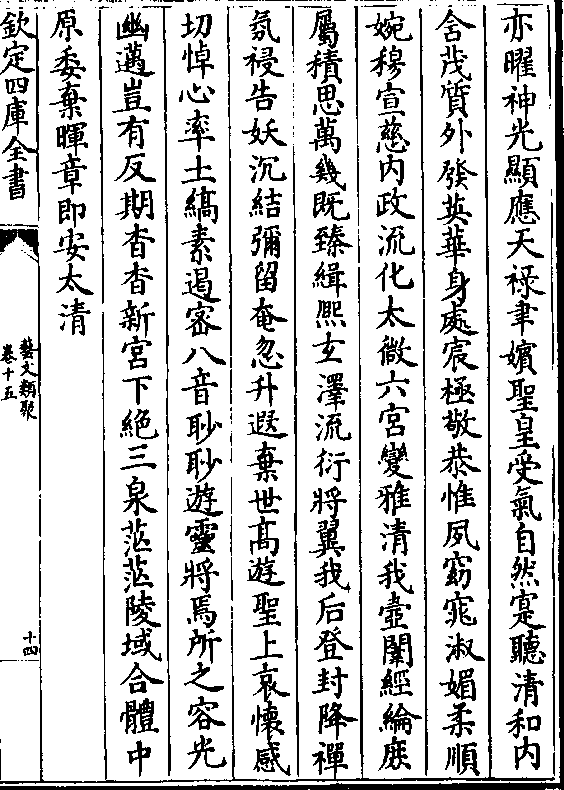 亦曜神光顯應天祿聿嬪聖皇受氣自然寔聽清和内
含茂質外發英華身處宸極敬恭惟夙窈窕淑媚柔順
婉穆宣慈内政流化太微六宮變雅清我壼闈經綸庶
屬積思萬幾既臻緝熙玄澤流衍將翼我后登封降禪
氛祲告妖沉結彌留奄忽升遐棄世髙遊聖上哀懷感
切悼心率土縞素遏密八音眇眇遊靈將焉所之容光
幽邁豈有反期杳杳新宮下絶三泉茫茫陵域合體中
原委棄暉章即安太清
欽定四庫全書
藝文類聚
卷十五
十四